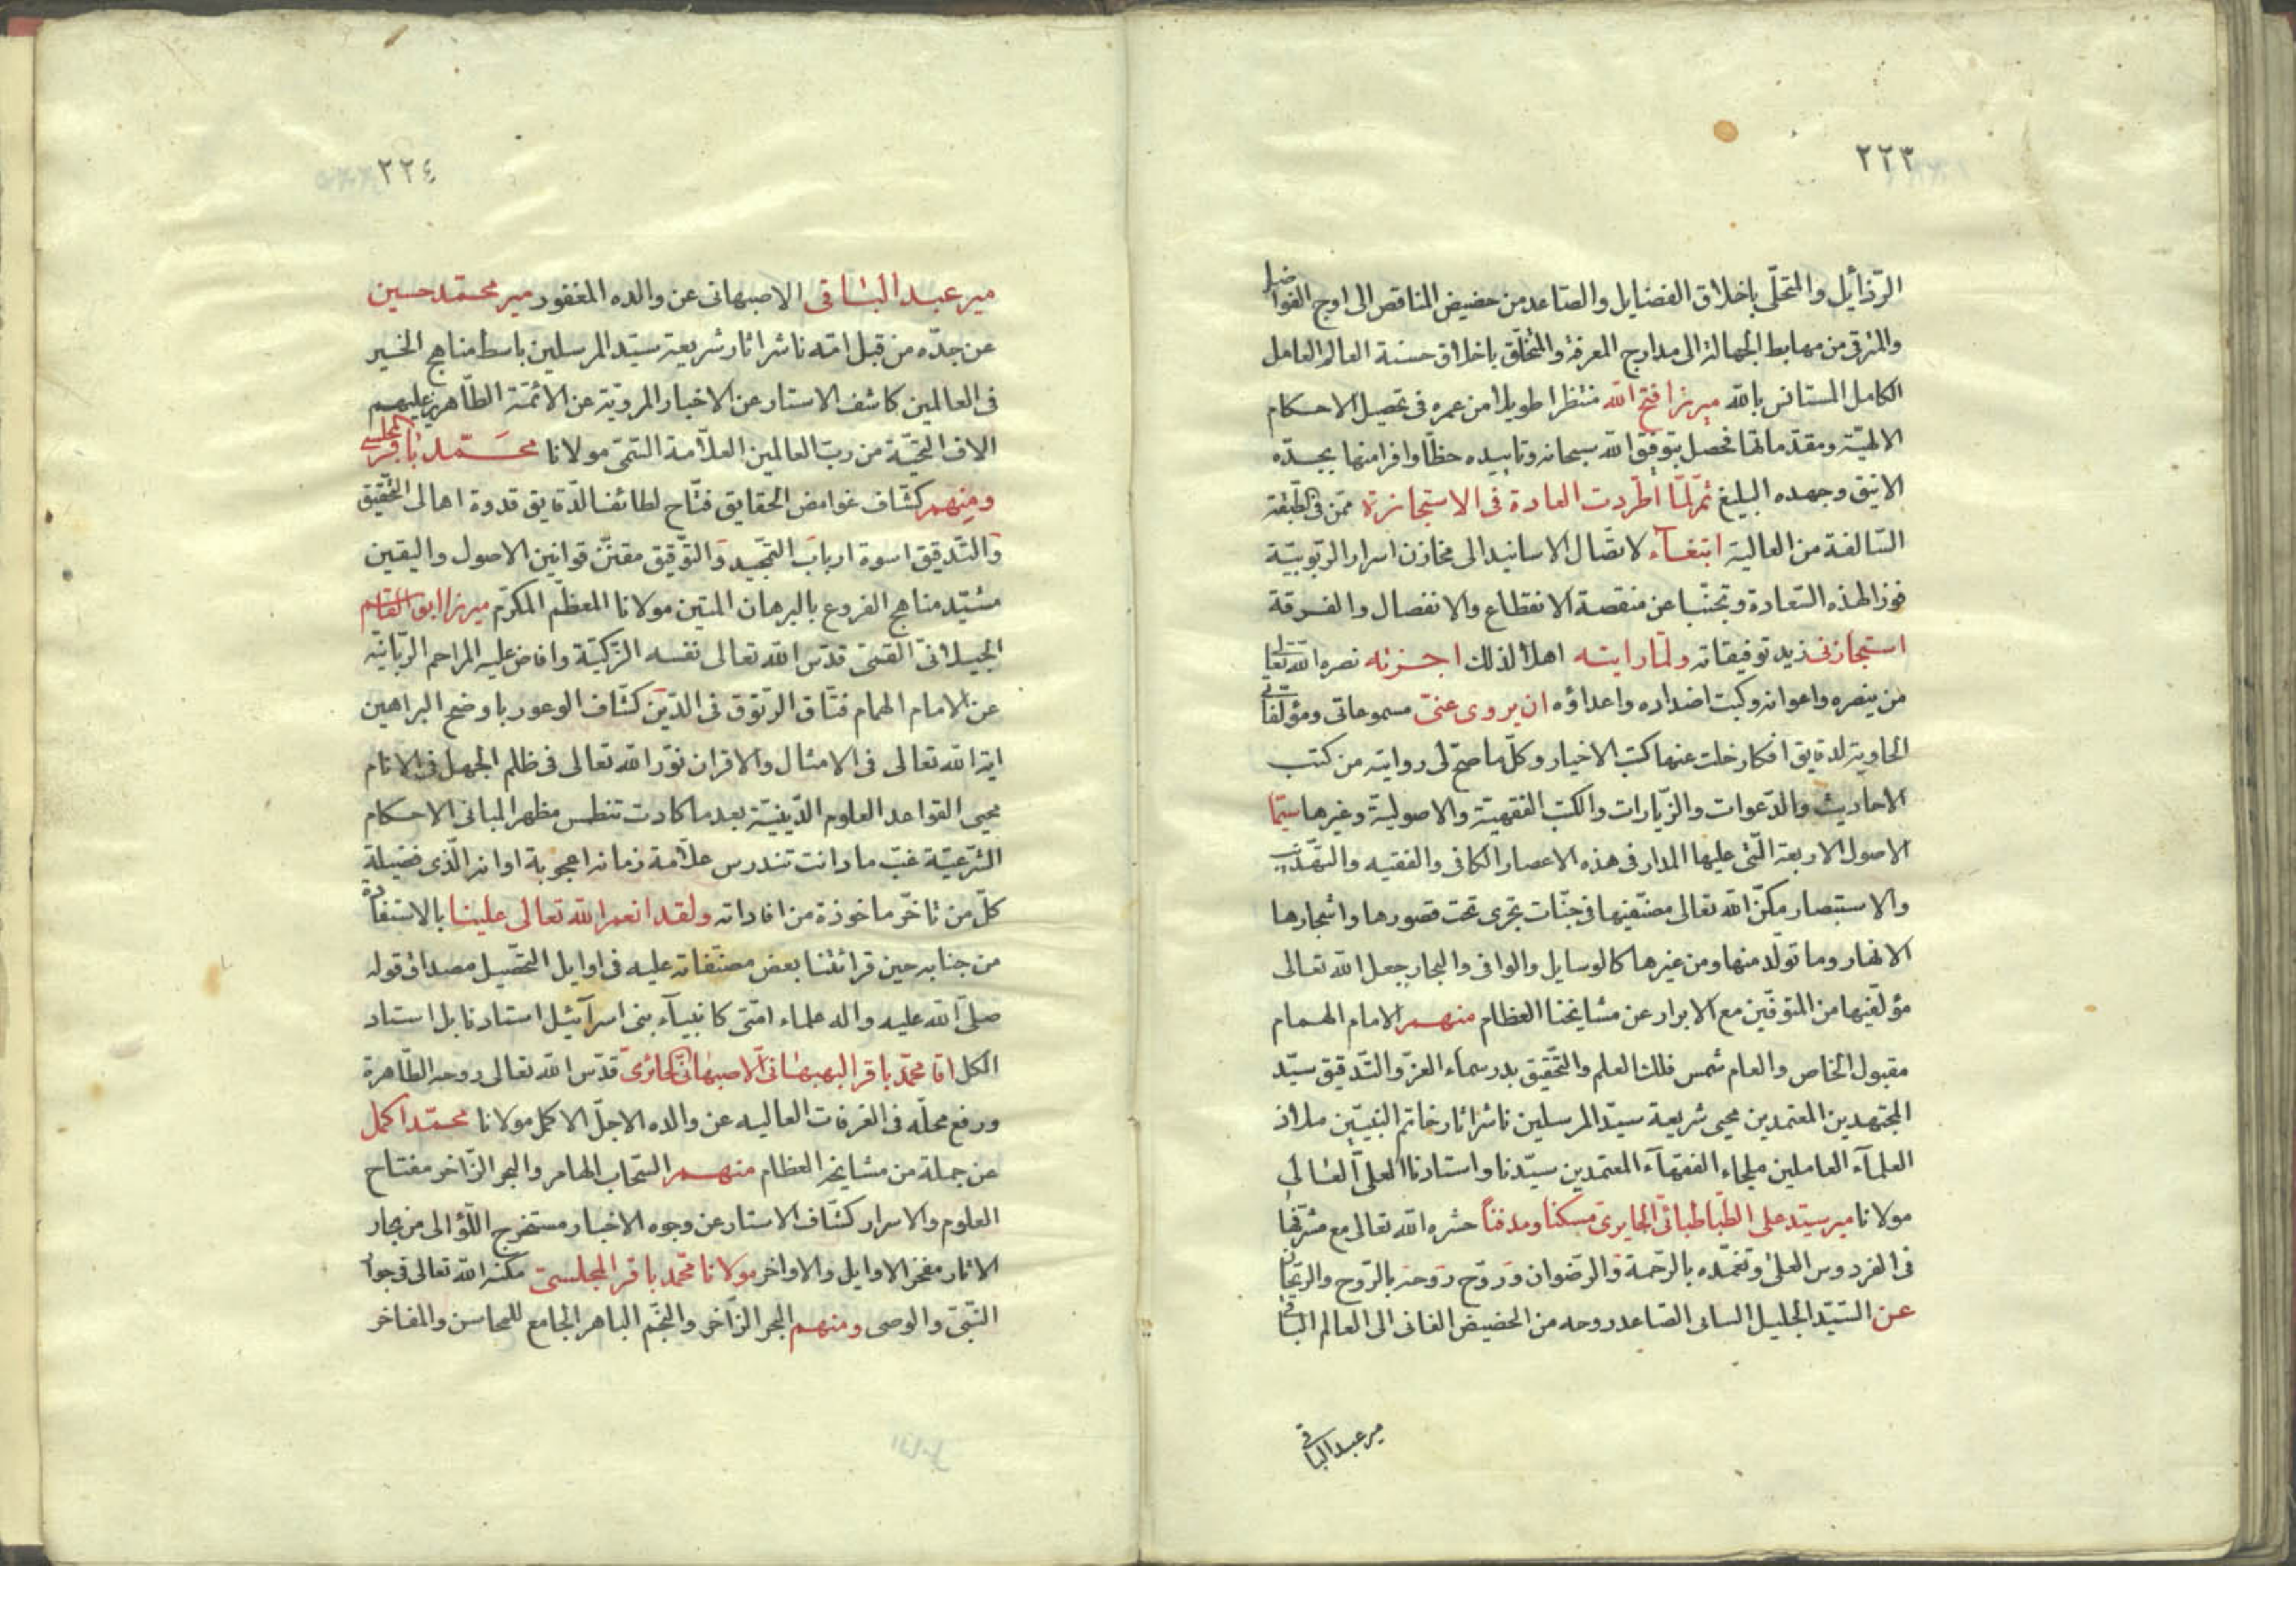 ٢٢٣
الرّذائل والمتحلّى باخلاق الفضايل والصّاعد من حضيض المناقص الى اوج الفواضل
والمترقى من مهابط الجهالة الى مدارج المعرفة والمتخلّق باخلاق حسنة العالم العامل
الكامل المستانس بالله ميرزا فتح الله منتظرا طويلا من عمره فى تحصيل الاحكام
الالهيّة ومقدّماتها فحصل بتوفيق الله سبحانه وتاييده حظّا وافرا منها بجدّه
الانيق وجهده البليغ ثمّ لمّا اطّردت العادة فى الاستجازة ممّن فى الطبقة
السّالفة من العالية ابتغآء لاتصّال الاسانيد الى مخازن اسرار الرّبوبيّة
فوزا لهذه السّعادة وتجنّبا عن منقصة الانقطاع والانفصال والفرقة
استجازنى زيد توفيقاته ولمّا رايته اهلا لذلك اجزته نصره الله تعالى
من ينصره واعوانه وكبت اضداده واعداؤه ان يروى عنّى مسموعاتى ومؤلّفاتى
الحاوية لدقايق افكار خلت عنها كتب الاخيار وكلّ ما صحّ لى روايته من كتب
الاحاديث والدّعوات والزّيارات والكتب الفقهيّة والاصوليّة وغيرها سيّما
الاصول الاربعة الّتى عليها المدار فى هذه الاعصار الكافى والفقيه والتهّذيب
والاستبصار مكّن الله تعالى مصنّفيها فى جنّات تجرى تحت قصورها واشجارها
الانهار وما تولّد منها ومن غيرها كالوسايل والوافى والبحار جعل الله تعالى
مؤلّفيها من المتوفّين مع الابرار عن مشايخنا العظام منهم الامام الهمام
مقبول الخاص والعام شمس فلك العلم والتّحقيق بدر سماء العزّ والتّدقيق سيّد
المجتهدين المعتمدين محيى شريعة سيّد المرسلين ناشر اثار خاتم النبيّين ملاذ
العلمآء العاملين ملجاء الفقهآء المعتمدين سيّدنا واستادنا العلىّ العالى
مولانا مير سيّد على الطّباطبائى الحايرى مسكنا ومدفنا حشره الله تعالى مع مشرّفها
فى الفردوس العلى وتغمّده بالرّحمة والرّضوان وروّح روحه بالرّوح والرّيحان
عن السّيّد الجليل السانى الصّاعد روحه من الحضيض الفانى الى العالم الباقى
مير عبد الباقى
٢٢٤
مير عبد الباقى الاصبهانى عن والده المغفور مير محمّد حسين
عن جدّه من قبل امّه ناشر اثار شريعة سيّد المرسلين باسط مناهج الخير
فى العالمين كاشف الاستار عن الاخبار المرويّة عن الائمّة الطّاهرين عليهم
الاف التحيّة من ربّ العالمين العلاّمة السّمىّ مولانا محمّد باقر المجلسى
ومنهم كشّاف غوامض الحقايق فتّاح لطائف الدّقايق قدوة اهالى التّحقيق
والتّدقيق اسوة ارباب التّجيد والتّوفيق مقنّن قوانين الاصول واليقين
مشيّد مناهج الفروع بالبرهان المتين مولانا المعظّم المكرّم ميرزا ابو القاسم
الجيلانى القمىّ قدّس الله تعالى نفسه الزكيّة وافاض عليه المراحم الرّبانيّة
عن الامام الهمام فتّاق الرّتوق فى الدّين كشّاف الوعور باوضح البراهين
اية الله تعالى فى الامثال والاقران نوّر الله تعالى فى ظلم الجهل فى الانام
محيى القواعد العلوم الدّينيّة بعد ما كادت تنطمس مظهر المبانى الاحكام
الشّرعيّة غبّ ما دانت تندرس علاّمة زمانه اعجوبة اوانه الّذى فضيلة
كلّ من تاخّر ماخوذة من افاداته ولقد انعم الله تعالى علينا بالاستفادة
من جنابه حين قرائتنا بعض مصنّفاته عليه فى اوايل التحّصيل مصداق قوله
صلّى الله عليه واله علماء امّتى كانبيآء بنى اسرآئيل استادنا بل استاد
الكل اقا محمّد باقر البهبهانى الاصبهانى الحائرى قدّس الله تعالى روحه الطّاهرة
ورفع محلّه فى الغرفات العاليه عن والده الاجلّ الاكمل مولانا محمّد اكمل
عن جملة من مشايخه العظام منهم السّحاب الهامر والبحر الزّاخر مفتاح
العلوم والاسرار كشّاف الاستار عن وجوه الاخبار مستخرج اللّؤالى من بحار
الاثار مفخر الاوايل والاواخر مولانا محّمد باقر المجلسىّ مكّنه الله تعالى فى جوار
النّبىّ والوصى ومنهم البحر الزّاخر والنّجم الباهر الجامع للمحاسن والمفاخر